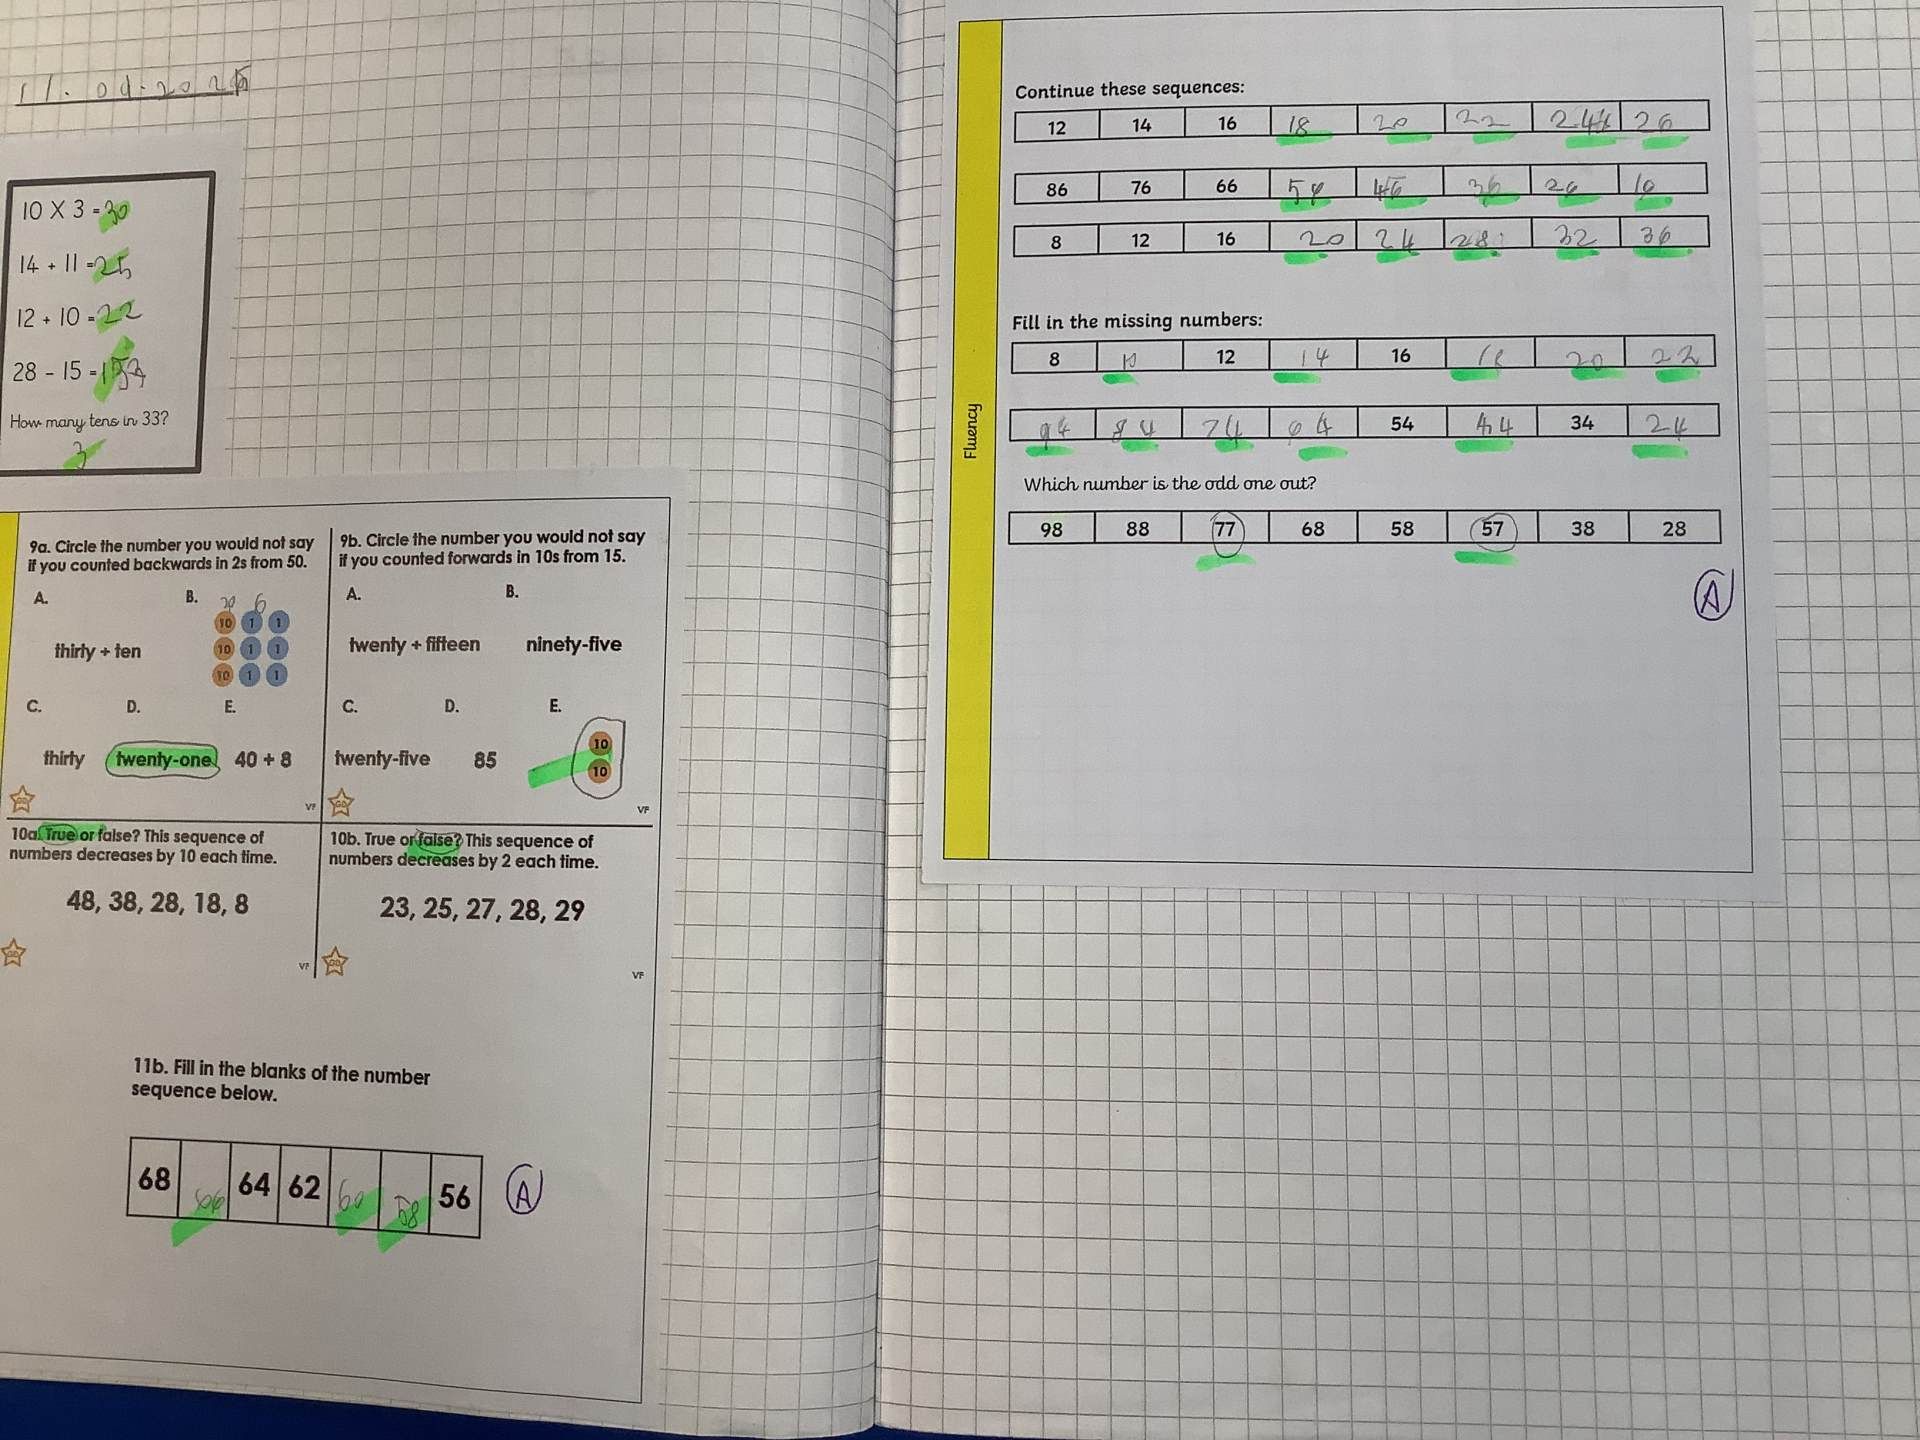 11.04.2025
10 X 3 = 30
14 + 11 = 25
12 + 10 = 22
28 - 15 =
How many tens in 33?
3
9a. Circle the number you would not say
if you counted backwards in 2s from 50.
A.
B.
30 6
10 1 1
10 1 1
10 1 1
thirty + ten
C.
D.
E.
thirty
twenty-one
40 + 8
VF
9b. Circle the number you would not say
if you counted forwards in 10s from 15.
A.
B.
twenty + fifteen
ninety-five
C.
D.
E.
twenty-five
85
10
10
GD
VF
10a. True or false? This sequence of
numbers decreases by 10 each time.
48, 38, 28, 18, 8
VF
10b. True or false? This sequence of
numbers decreases by 2 each time.
23, 25, 27, 28, 29
GD
VF
11b. Fill in the blanks of the number
sequence below.
68 66 64 62 60 58 56
A
Fluency
Continue these sequences:
12 14 16 18 20 22 24 26
86 76 66 56 46 36 26 16
8 12 16 20 24 28 32 36
Fill in the missing numbers:
8 10 12 14 16 18 20 22
94 84 74 64 54 44 34 24
Which number is the odd one out?
98 88 77 68 58 57 38 28
A